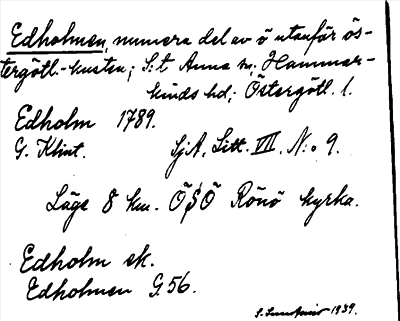 Edholmen, numera del av ö utanför ös-
tergötl.-kusten; S:t Anna sn; Hammar-
kinds hd; Östergötl. l.
Edholm 1789.
G. Klint. SjA, Litt. VII. N:o 9.
Läge 8 km. ÖSÖ Rönö kyrka.
Edholm ek.
Edholmen G.56.
1939.